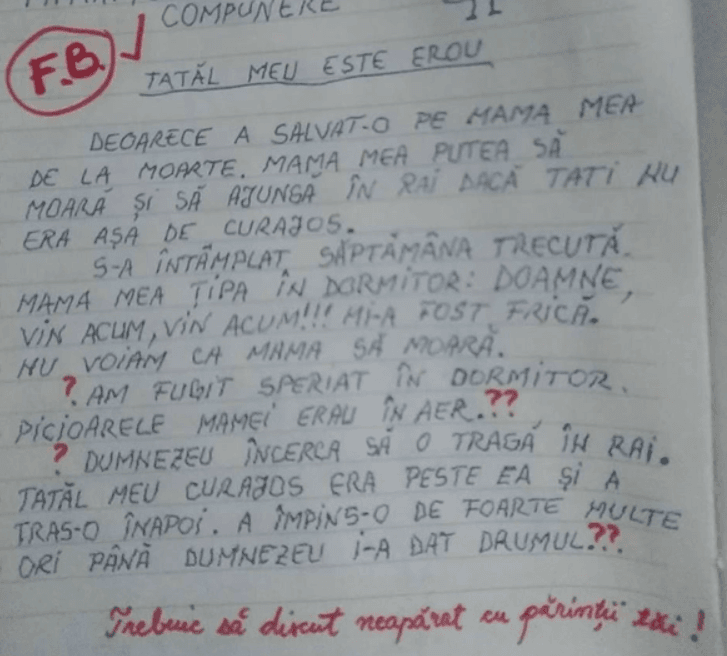 COMPUNERE
F.B.
TATĂL MEU ESTE EROU
DEOARECE A SALVAT-O PE MAMA MEA
DE LA MOARTE. MAMA MEA PUTEA SĂ
MOARĂ ȘI SĂ AJUNGĂ ÎN RAI DACĂ TATI NU
ERA AȘA DE CURAJOS.
S-A ÎNTÂMPLAT SĂPTĂMÂNA TRECUTĂ.
MAMA MEA ȚIPA ÎN DORMITOR: DOAMNE,
VIN ACUM, VIN ACUM!!! MI-A FOST FRICĂ.
NU VOIAM CA MAMA SĂ MOARĂ.
? AM FUGIT SPERIAT ÎN DORMITOR.
PICIOARELE MAMEI ERAU ÎN AER.??
? DUMNEZEU ÎNCERCA SĂ O TRAGĂ ÎN RAI.
TATĂL MEU CURAJOS ERA PESTE EA ȘI A
TRAS-O ÎNAPOI. A ÎMPINS-O DE FOARTE MULTE
ORI PÂNĂ DUMNEZEU I-A DAT DRUMUL??.
Trebuie să discut neapărat cu părinții tăi!